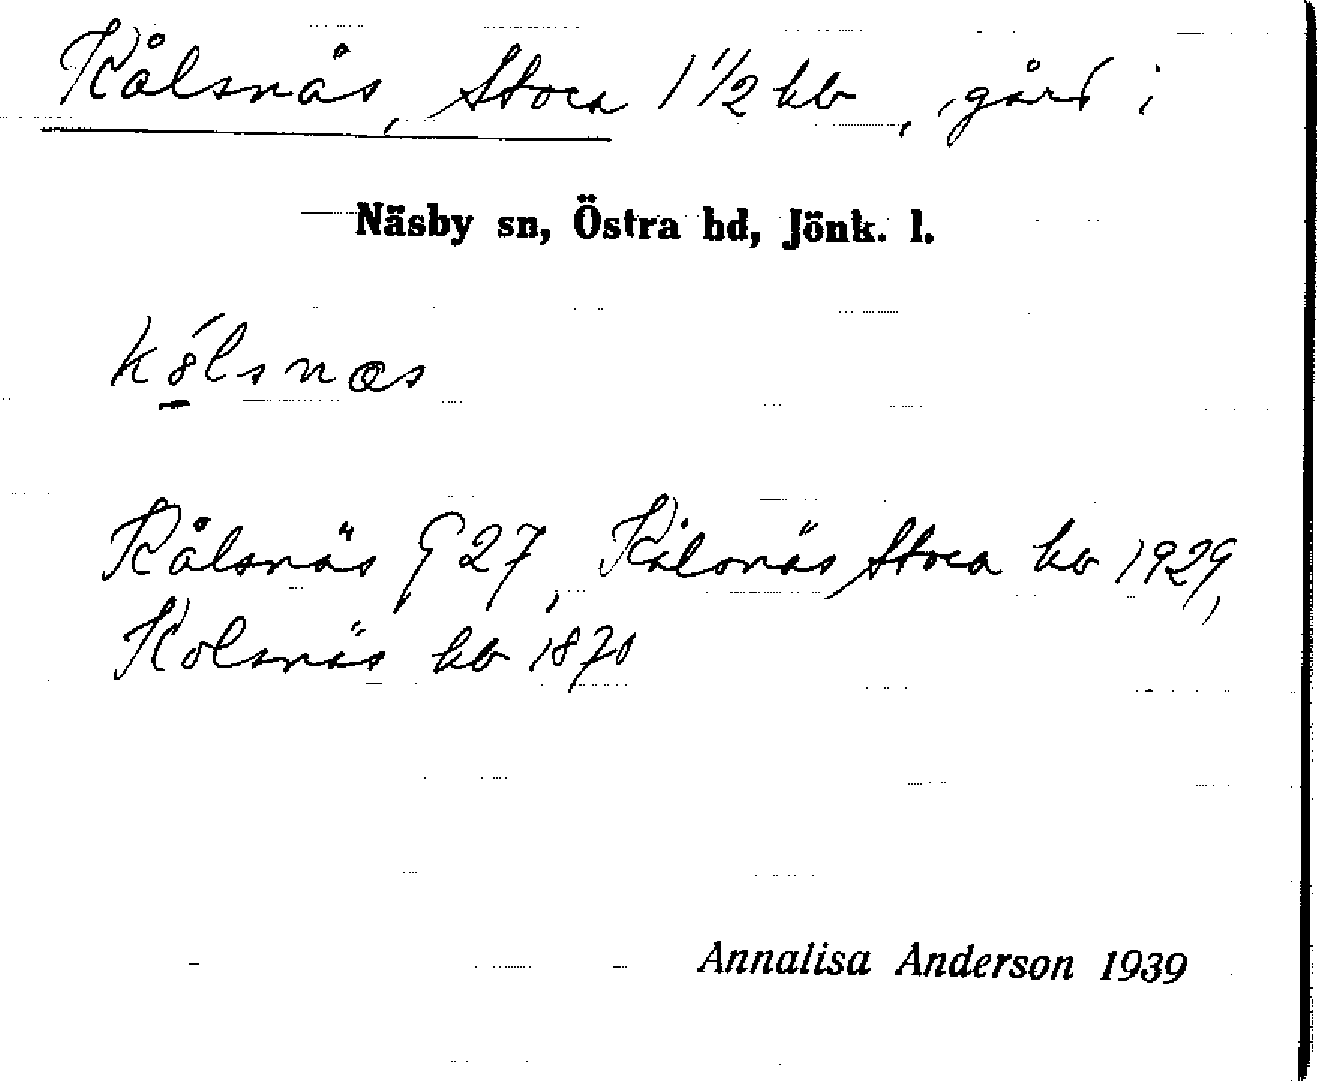 Kålsnäs, Stora 1 1/2 hb, gård i
Näsby sn, Östra hd, Jönk. l.
Kålsnäs G 27, Kålsnäs Stora hb 1929,
Kolsnäs hb 1870
Annalisa Anderson 1939